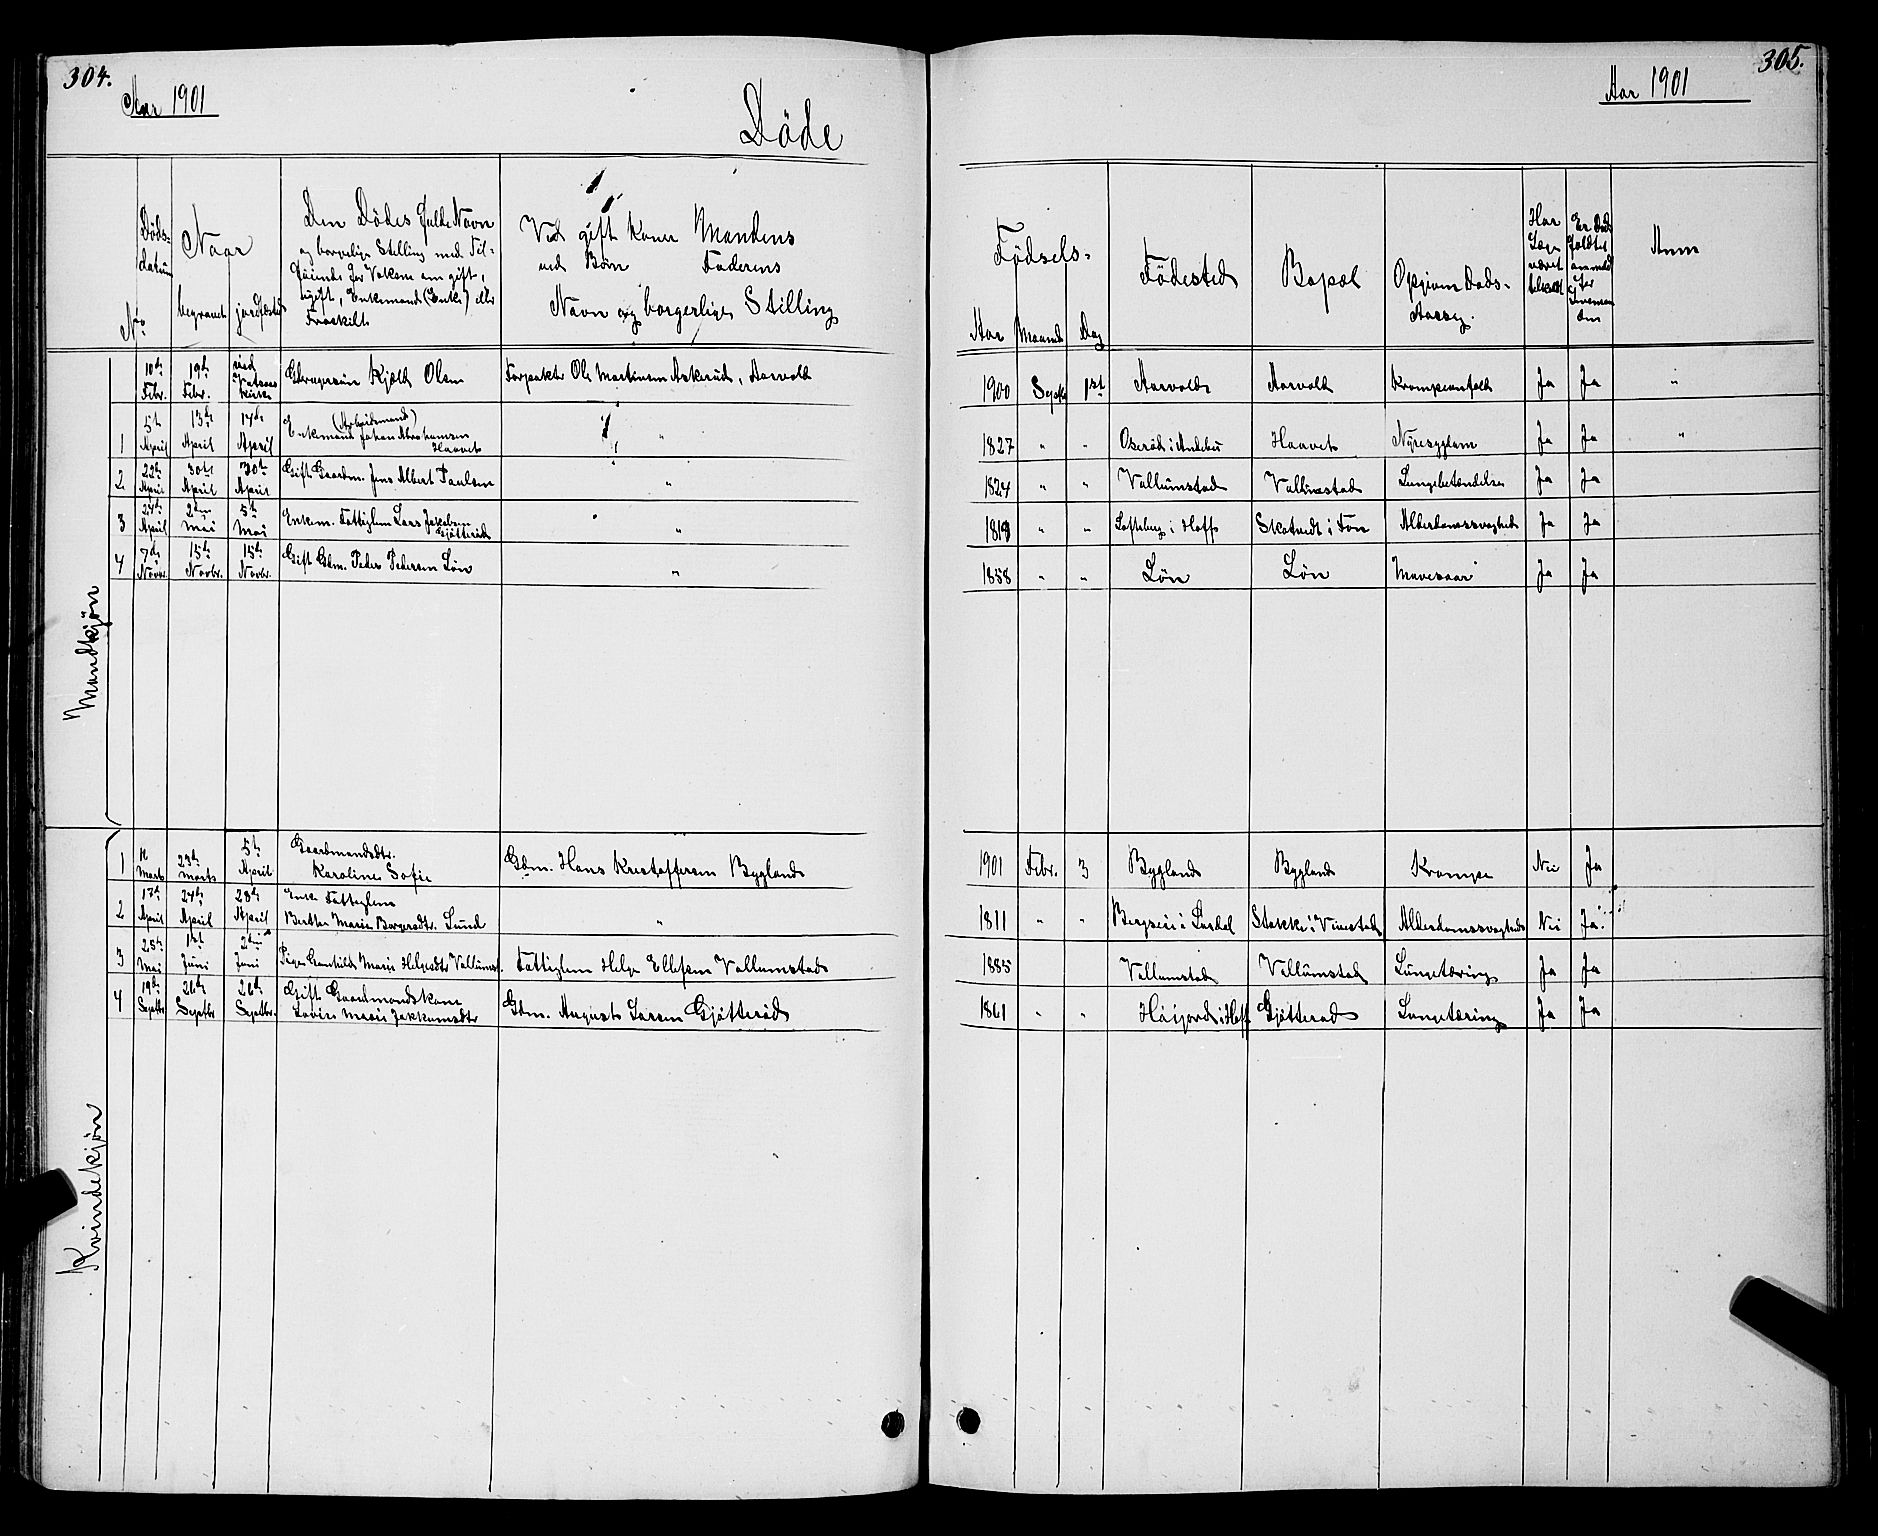 304.
Aar 1901
Döde
Döds-
datum
Naar
Den Dödes fulde Navn
og borgelige Stilling med Til-
föiende for Voksne om gift,
ugift, Enkemand (Enke) eller
Fraskilt
Ved gift Koner Mandens
ved Börn Faderens
Navn og borgerlige Stilling
No
begravet
jordfæstet
10de Febr. 19de Febr. ved Kirke Kjeld Olsen Forpakter Ole Martinsen Askerud, Aarvold
1 5te April 13de April 14de April Enkemand (Arbeidsmand) Johan Abrahamsen Haavet "
2 22de April 30te April 30te April Gift Gaardm. Jens Albert Paulsen "
3 24de April 2den Mai 5te Mai Enkem. Fattiglem Lars Jakobsen Gjötteröd "
4 7de Novbr. 15de Novbr. 15de Novbr. Gift Gdm. Peder Pedersen Lön "
Mandkjön
1 Marts 23de Marts 5te April Gaardmandsdtr. Karoline Sofie Gdm. Hans Kristoffersen Bygland
2 17de April 24de April 28de April Enke Fattiglem Berthe Marie Borgersdtr. Lund "
3 25te Mai 1ste Juni 2den Juni Pige Gunhild Marie Helgesdtr Vallumst. Fattiglem Helge Ellefsen Vallumstad
4 19de Septbr 26de Septbr 26de Septbr. Gift Gaardmandskone Lovise Marie Gdm. August Larsen Gjötteröd
Kvindekjön
305.
Aar 1901
Födsels-
Aar Maaned Dag
Födested
Bopæl
Opgiven Döds-
Aarsag.
Har
Læge
været
tilkaldt
Er Döds
faldet
anmeldt
for
Anm
1900 Septbr 1st Aarvold Aarvold Krampeanfald Ja Ja "
1827 " " Oseröd i Andebu Haavet Nyresygdom Ja Ja "
1824 " " Vallumstad Vallumstad Lungebetændelse Ja Ja
1819 " " i Hoff i Fon Alderdomssvaghed Ja Ja
1858 " " Lön Lön Mavesaar Ja Ja
1901 Febr. 3 Bygland Bygland Krampe Nei Ja
1811 " " i Lardal Stokke i Vivestad Alderdomssvaghed Nei Ja
1885 Vallumstad Vallumstad Lungetæring Ja Ja
1861 " " i Hoff Gjötterød Lungetæring Ja Ja